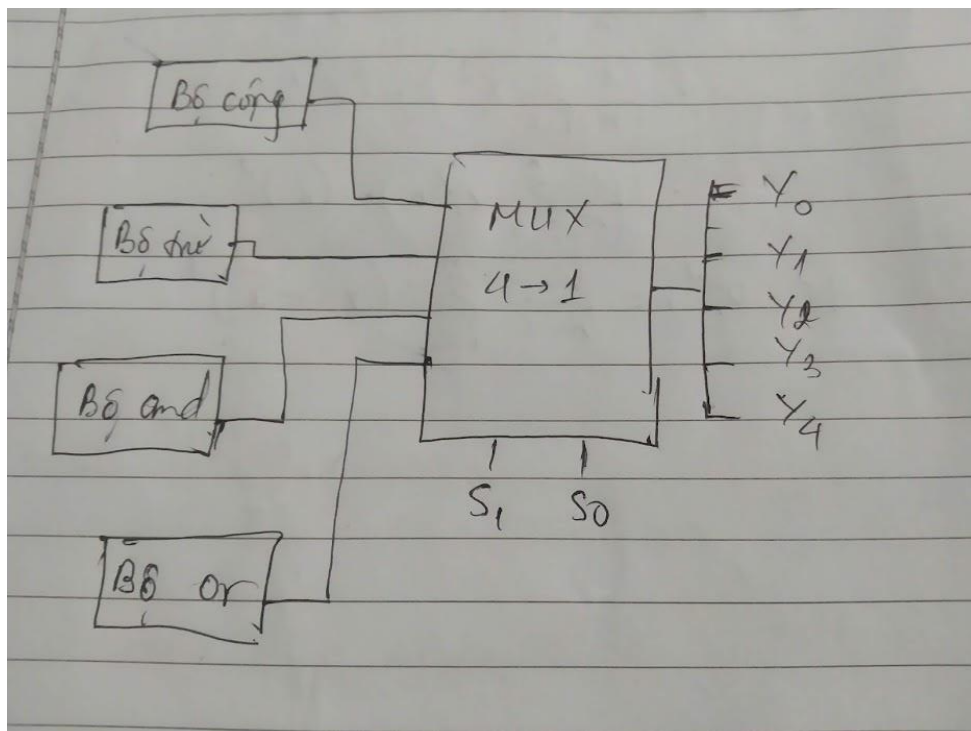 Bộ cộng
Bộ trừ
Bộ and
Bộ or
MUX
4→1
S1 S0
Y0
Y1
Y2
Y3
Y4